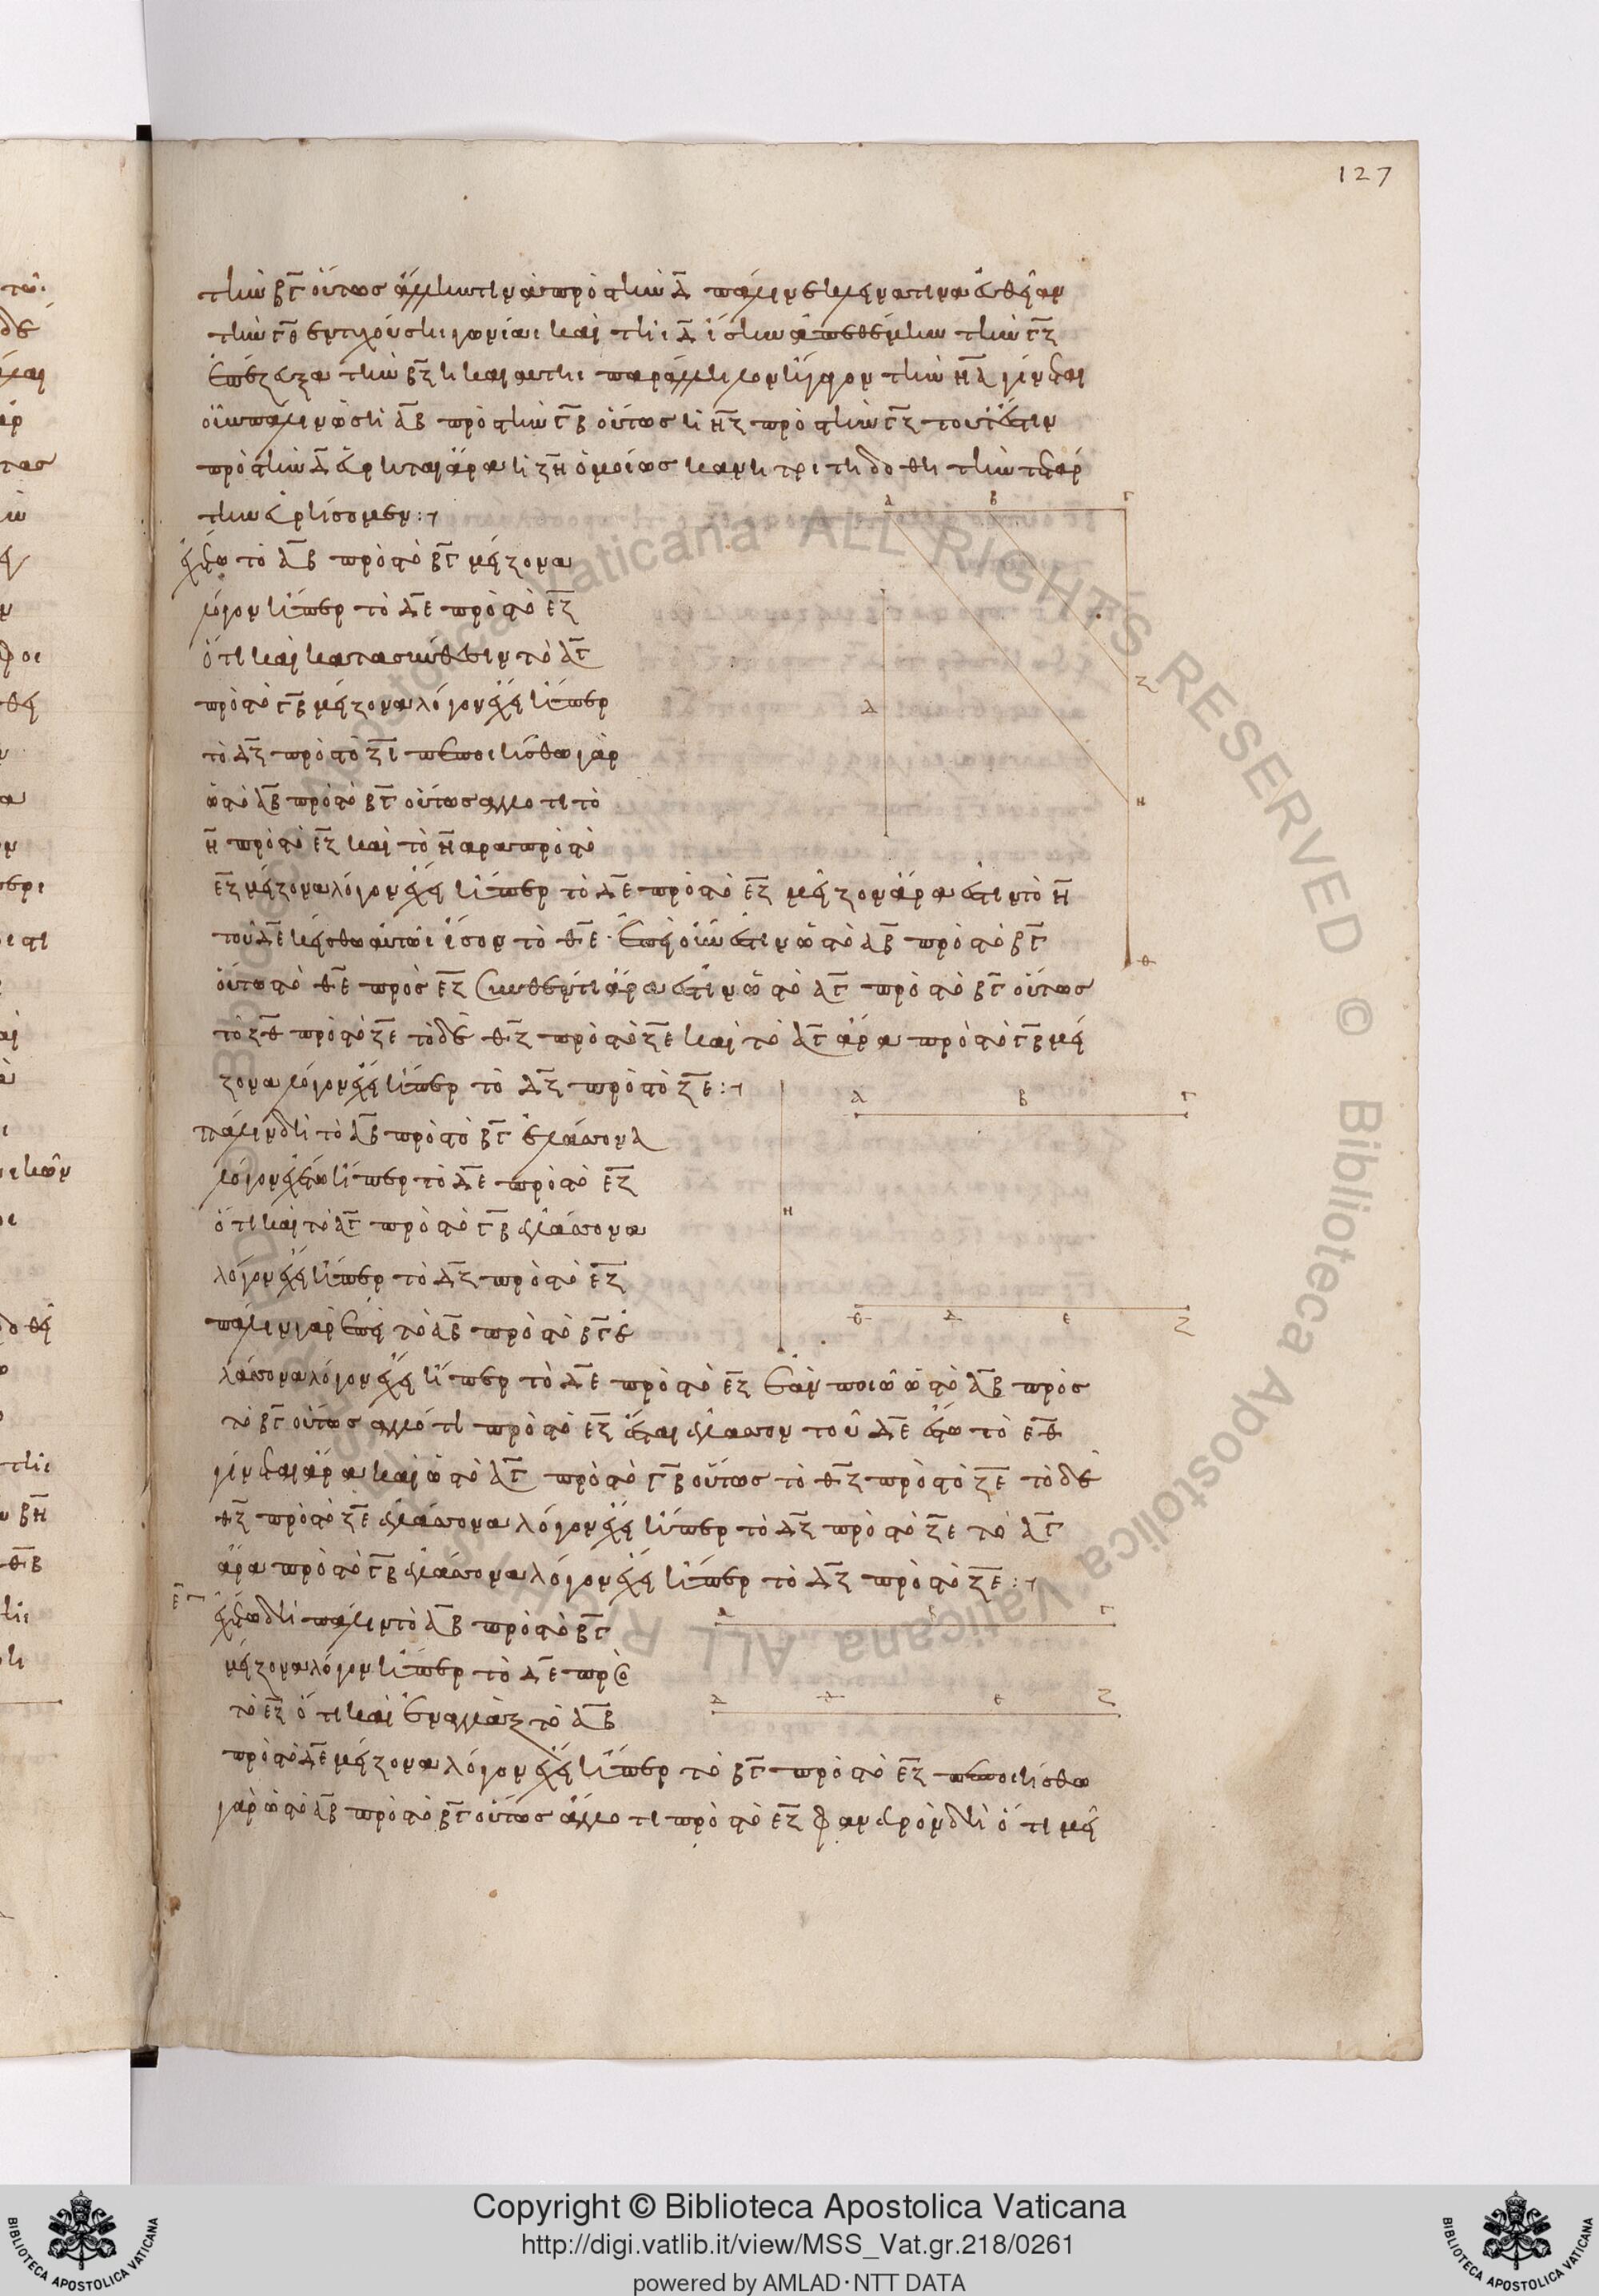 127
τὴν ΒΓ οὕτως ἄλλην τινὰ πρὸς τὴν Δ πάλιν ἐκκείσθω τινα εὐθεῖαν
τὴν ΓΘ ἐν τυχούσηι γωνίαι καὶ τῆι Δ ἴσην ἀπεθέμην τὴν ΓΖ
ἐπέζευξα τὴν ΒΖ ἧι καὶ αὐτῆι παράλληλον ἤγαγον τὴν ΗΑ γίνεται
οὖν πάλιν ὡς ἡ ΑΒ πρὸς τὴν ΓΒ οὕτως ἡ ΗΖ πρὸς τὴν ΓΖ τουτέστιν
πρὸς τὴν Δ εὕρηται ἄρα ἡ ΖΗ ὁμοίως κἂν ἡ τρίτη δοθῆι τὴν τετάρ
την εὑρήσομεν :
ἐχέτω τὸ ΑΒ πρὸς τὸ ΒΓ μείζονα
λόγον ἤπερ τὸ ΔΕ πρὸς τὸ ΕΖ
ὅτι καὶ κατὰ σύνθεσιν τὸ ΑΓ
πρὸς τὸ ΓΒ μείζονα λόγον ἔχει ἤπερ
τὸ ΔΖ πρὸς τὸ ΖΕ πεποιήσθω γὰρ
ὡς τὸ ΑΒ πρὸς τὸ ΒΓ οὕτως ἄλλο τι τὸ
Η πρὸς τὸ ΕΖ καὶ τὸ Η ἄρα πρὸς τὸ
ΕΖ μείζονα λόγον ἔχει ἤπερ τὸ ΔΕ πρὸς τὸ ΕΖ μεῖζον ἄρα ἐστιν τὸ Η
τοῦ ΔΕ κείσθω αὐτῶι ἴσον τὸ ΘΕ ἐπεὶ οὖν ἐστιν ὡς τὸ ΑΒ πρὸς τὸ ΒΓ
οὕτω τὸ ΘΕ πρὸς ΕΖ συνθέντι ἄρα ἐστὶν ὡς τὸ ΑΓ πρὸς τὸ ΒΓ οὕτως
τὸ ΖΘ πρὸς τὸ ΖΕ τὸ δὲ ΘΖ πρὸς τὸ ΖΕ καὶ τὸ ΑΓ ἄρα πρὸς τὸ ΓΒ μεί
ζονα λόγον ἔχει ἤπερ τὸ ΔΖ πρὸς τὸ ΖΕ :
πάλιν δὴ τὸ ΑΒ πρὸς τὸ ΒΓ ἐλάττονα
λόγον ἐχέτω ἤπερ τὸ ΔΕ πρὸς τὸ ΕΖ
ὅτι καὶ τὸ ΑΓ πρὸς τὸ ΓΒ ἐλάττονα
λόγον ἔχει ἤπερ τὸ ΔΖ πρὸς τὸ ΕΖ
πάλιν γὰρ ἐπεὶ τὸ ΑΒ πρὸς τὸ ΒΓ ἐ
λάττονα λόγον ἔχει ἤπερ τὸ ΔΕ πρὸς τὸ ΕΖ ἐὰν ποιῶ ὡς τὸ ΑΒ πρὸς
τὸ ΒΓ οὕτως ἄλλό τι πρὸς τὸ ΕΖ ἔσται ἔλαττον τοῦ ΔΕ ἔστω τὸ ΕΘ
γίνεται ἄρα καὶ ὡς τὸ ΑΓ πρὸς τὸ ΓΒ οὕτως τὸ ΘΖ πρὸς τὸ ΖΕ τὸ δὲ
ΘΖ πρὸς τὸ ΖΕ ἐλάττονα λόγον ἔχει ἤπερ τὸ ΔΖ πρὸς τὸ ΖΕ τὸ ΑΓ
ἄρα πρὸς τὸ ΓΒ ἐλάττονα λόγον ἔχει ἤπερ τὸ ΔΖ πρὸς τὸ ΖΕ :
ἐχέτω δὴ πάλιν τὸ ΑΒ πρὸς τὸ ΒΓ
μείζονα λόγον ἤπερ τὸ ΔΕ πρὸς
τὸ ΕΖ ὅτι καὶ ἐναλλὰξ τὸ ΑΒ
πρὸς τὸ ΔΕ μείζονα λόγον ἔχει ἤπερ τὸ ΒΓ πρὸς τὸ ΕΖ πεποιήσθω
γὰρ ὡς τὸ ΑΒ πρὸς τὸ ΒΓ οὕτως ἄλλο τι πρὸς τὸ ΕΖ φανερὸν δὴ ὅτι μεῖ
Α Β Γ
Ζ
Δ
Η
Θ
Α Β Γ
Η
Θ Δ Ε Ζ
Α Β Γ
Δ Θ Ε Ζ
Copyright © Biblioteca Apostolica Vaticana
http://digi.vatlib.it/view/MSS_Vat.gr.218/0261
powered by AMLAD·NTT DATA
BIBLIOTECA APOSTOLICA VATICANA
BIBLIOTECA APOSTOLICA VATICANA